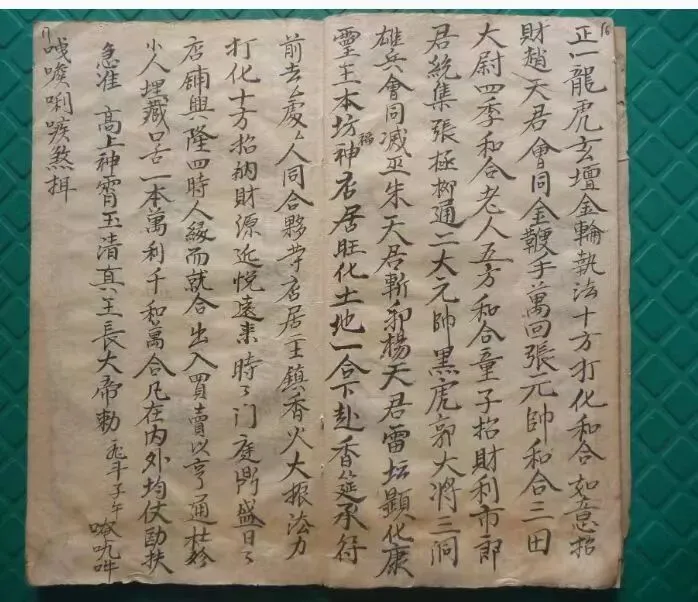 16
正一龍虎玄壇金輪執法十方打化和合如意招
財趙天君會同金鞭手萬回張元帥和合三田
大尉四季和合老人五方和合童子招財利市郎
君統集張極柳通二大元帥黑虎郭大將三洞
雄兵會同滅巫朱天君斬邪楊天君雷坛顯化康
靈王本坊神福店居旺化土地一合下赴香筵承符
前去處人同合夥等店居主鎮香火大振法力
打化十方招納財源近悅遠來時了门庭興盛日了
店鋪興隆四時人緣而就合出入買賣以亨通杜終
小人埋藏口舌一本萬利千和萬合凡在内外均仗助扶
急准 高上神霄玉清真王長大帝勅 斗子午
唵吽
唎煞摄